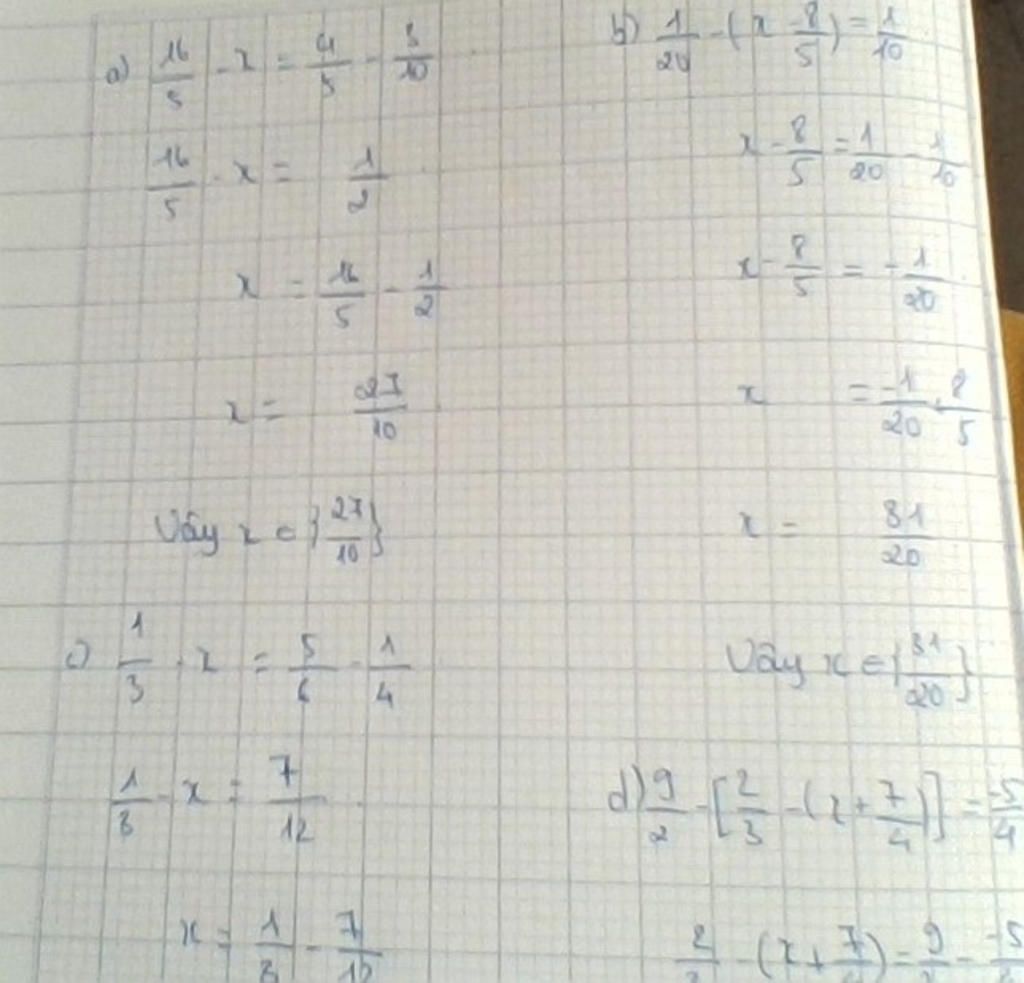 a) 16/5 - x = 4/5 - 3/10
16/5 - x = 1/2
x = 16/5 - 1/2
x = 27/10
Vậy x ∈ {27/10}
b) 1/20 - (x - 8/5) = 1/10
x - 8/5 = 1/20 - 1/10
x - 8/5 = -1/20
x = -1/20 + 8/5
x = 31/20
Vậy x ∈ {31/20}
c) 1/3 - x = 5/6 - 1/4
1/3 - x = 7/12
x = 1/3 - 7/12
d) 9/2 - [2/3 - (x + 7/4)] = -5/4
- (x + 7/4) = 9/2 - -5